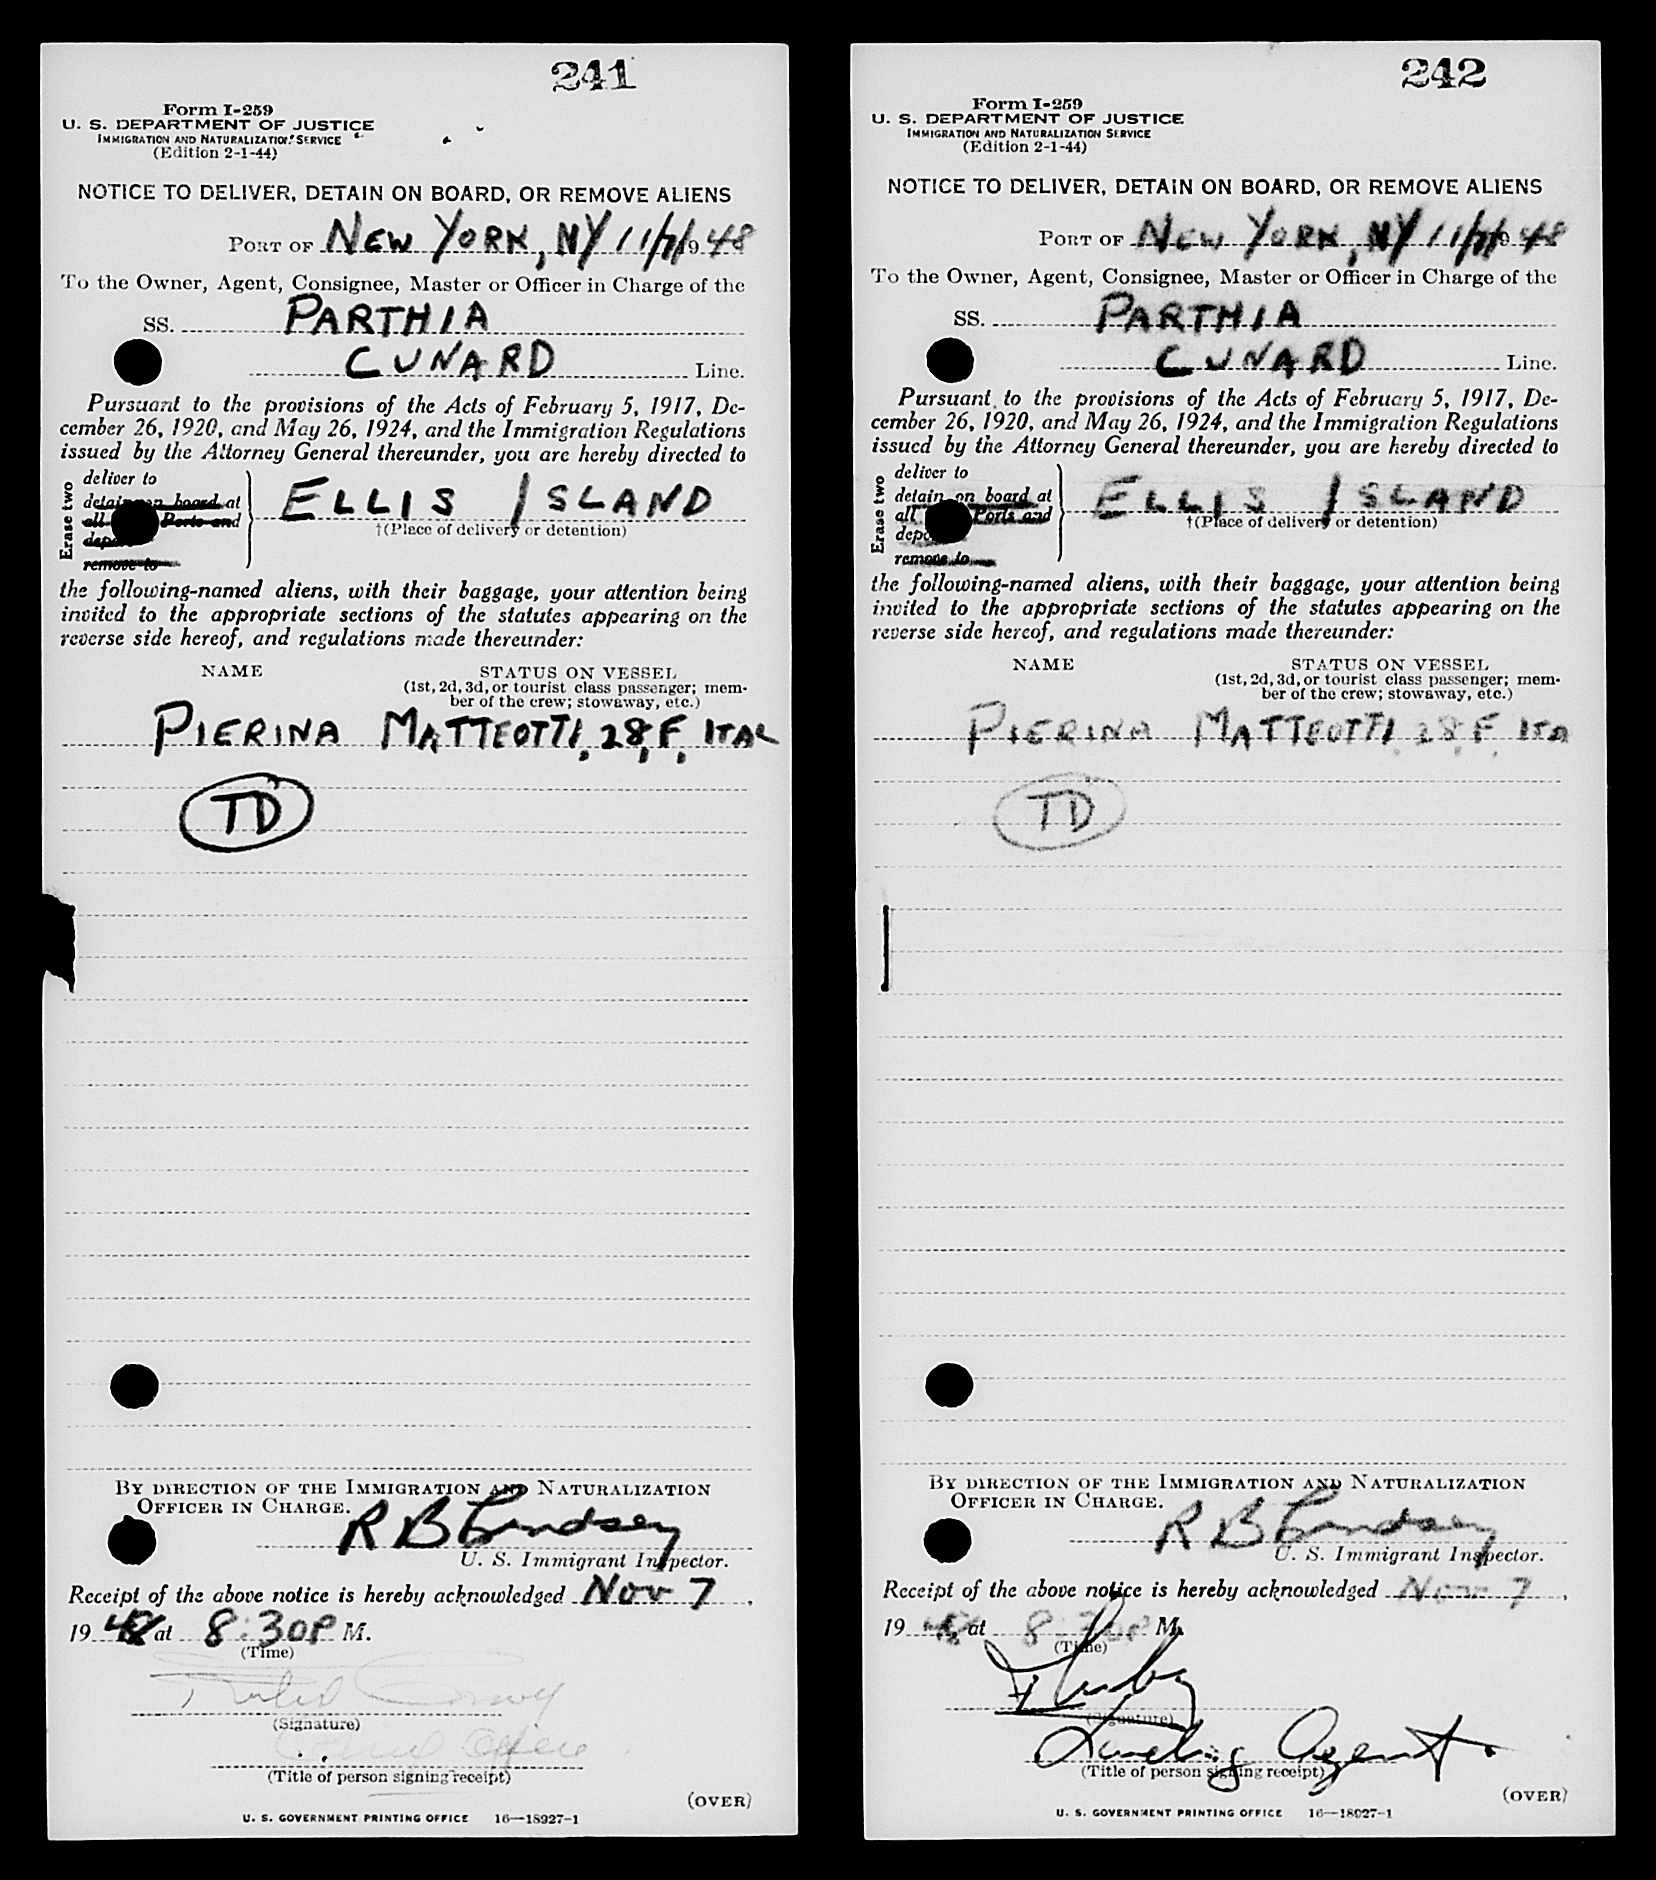 241
Form I-259
U. S. DEPARTMENT OF JUSTICE
IMMIGRATION AND NATURALIZATION SERVICE
(Edition 2-1-44)
NOTICE TO DELIVER, DETAIN ON BOARD, OR REMOVE ALIENS
PORT OF NEW YORK, NY 11/7/1948
To the Owner, Agent, Consignee, Master or Officer in Charge of the
SS. PARTHIA
CUNARD Line.
Pursuant to the provisions of the Acts of February 5, 1917, De-
cember 26, 1920, and May 26, 1924, and the Immigration Regulations
issued by the Attorney General thereunder, you are hereby directed to
Erase two
deliver to
detain on board at
all Ports and
remove to
ELLIS ISLAND
†(Place of delivery or detention)
the following-named aliens, with their baggage, your attention being
invited to the appropriate sections of the statutes appearing on the
reverse side hereof, and regulations made thereunder:
NAME STATUS ON VESSEL
(1st, 2d, 3d, or tourist class passenger; mem-
ber of the crew; stowaway, etc.)
PIERINA MATTEOTTI, 28, F, ITAL
TD
BY DIRECTION OF THE IMMIGRATION AND NATURALIZATION
OFFICER IN CHARGE.
R B Lindsey
U. S. Immigrant Inspector.
Receipt of the above notice is hereby acknowledged Nov 7,
1948 at 8:30P M.
(Time)
(Signature)
(Title of person signing receipt)
(OVER)
U. S. GOVERNMENT PRINTING OFFICE 16—18927-1
242
Form I-259
U. S. DEPARTMENT OF JUSTICE
IMMIGRATION AND NATURALIZATION SERVICE
(Edition 2-1-44)
NOTICE TO DELIVER, DETAIN ON BOARD, OR REMOVE ALIENS
PORT OF NEW YORK, NY 11/7/1948
To the Owner, Agent, Consignee, Master or Officer in Charge of the
SS. PARTHIA
CUNARD Line.
Pursuant to the provisions of the Acts of February 5, 1917, De-
cember 26, 1920, and May 26, 1924, and the Immigration Regulations
issued by the Attorney General thereunder, you are hereby directed to
Erase two
deliver to
detain on board at
all Ports and
remove to
ELLIS ISLAND
†(Place of delivery or detention)
the following-named aliens, with their baggage, your attention being
invited to the appropriate sections of the statutes appearing on the
reverse side hereof, and regulations made thereunder:
NAME STATUS ON VESSEL
(1st, 2d, 3d, or tourist class passenger; mem-
ber of the crew; stowaway, etc.)
PIERINA MATTEOTTI, 28, F, ITA
TD
BY DIRECTION OF THE IMMIGRATION AND NATURALIZATION
OFFICER IN CHARGE.
R B Lindsey
U. S. Immigrant Inspector.
Receipt of the above notice is hereby acknowledged Nov 7,
1948, at 8:30P M.
(Time)
(Signature)
Landing Agent.
(Title of person signing receipt)
(OVER)
U. S. GOVERNMENT PRINTING OFFICE 16—18927-1